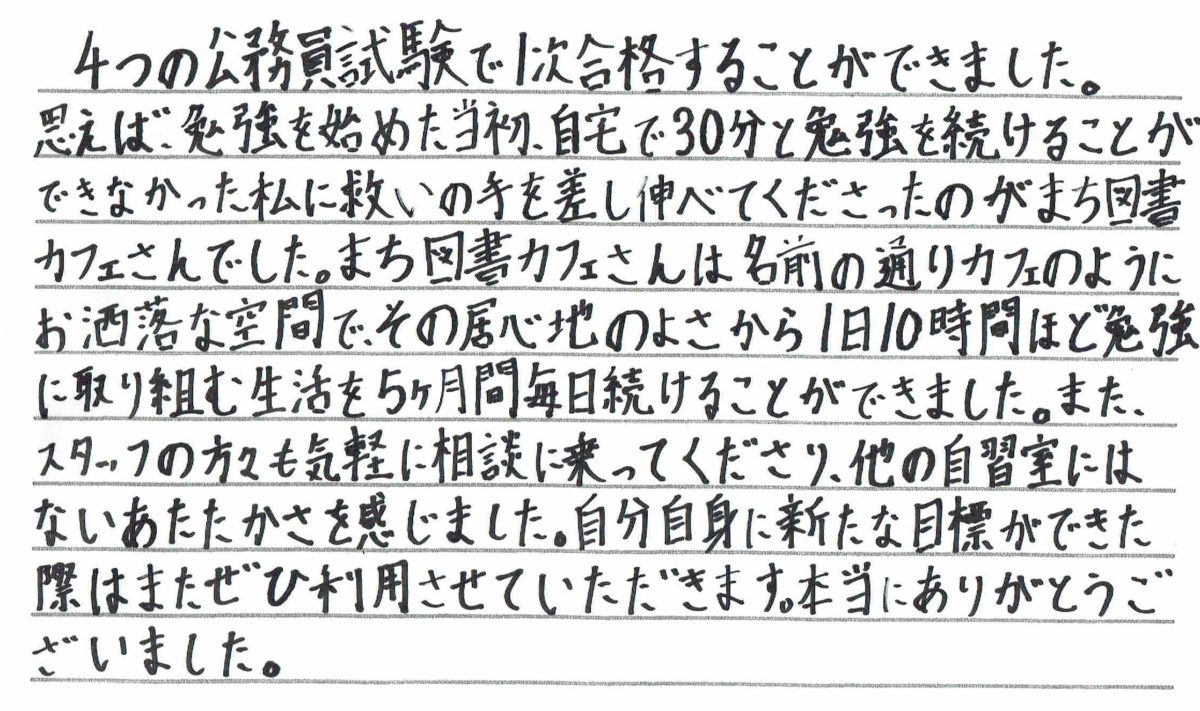 4つの公務員試験で1次合格することができました。
思えば、勉強を始めた当初、自宅で30分と勉強を続けることが
できなかった私に救いの手を差し伸べてくださったのがまち図書
カフェさんでした。まち図書カフェさんは名前の通りカフェのように
お洒落な空間で、その居心地のよさから1日10時間ほど勉強
に取り組む生活を5ヶ月間毎日続けることができました。また、
スタッフの方々も気軽に相談に乗ってくださり、他の自習室には
ないあたたかさを感じました。自分自身に新たな目標ができた
際はまたぜひ利用させていただきます。本当にありがとうご
ざいました。